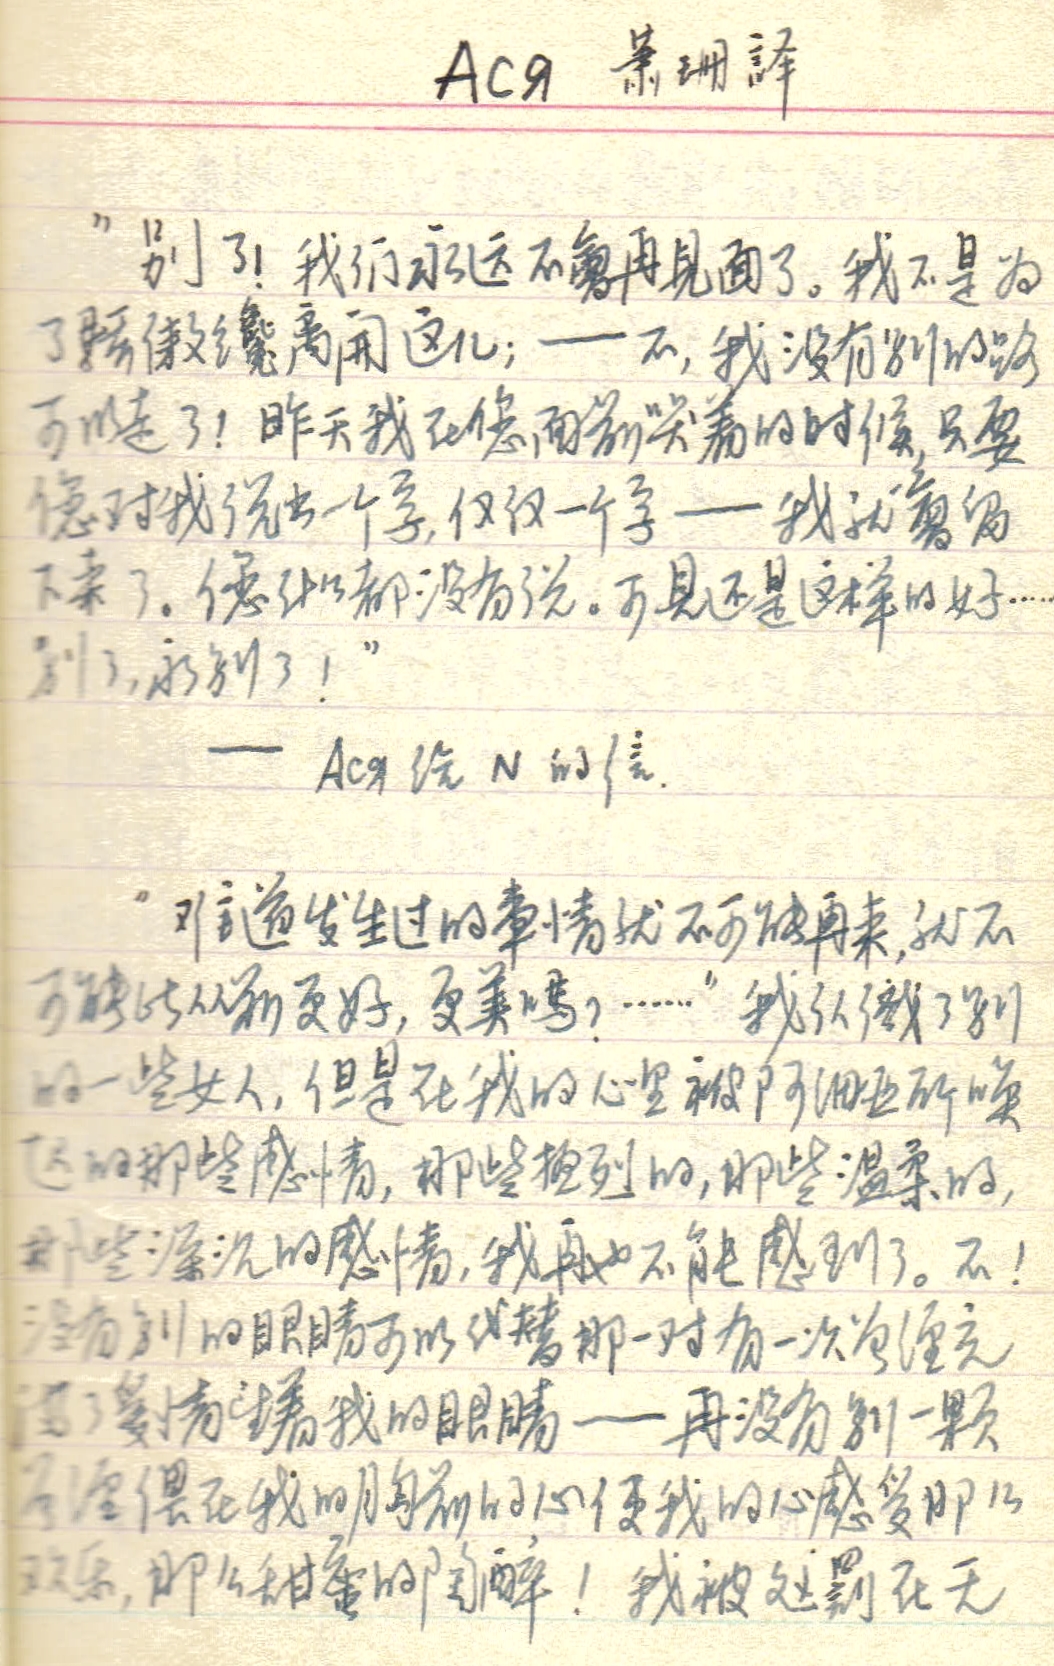 Ася 萧珊譯
"别了！我们永远不會再見面了。我不是为
了驕傲纔离開这儿；——不，我没有别的路
可以走了！昨天我在您面前哭着的时候，只要
您对我说出一个字，仅仅一个字——我就會留
下来了。您什么都没有说。可見还是这样的好……
别了，永别了！"
—— Ася 给 N 的信.
"难道发生过的事情就不可能再来，就不
可能比从前更好，更美嗎？……"我认識了别
的一些女人，但是在我的心里被阿细亚所唤
起的那些感情，那些热烈的，那些温柔的，
那些深沉的感情，我再也不能感到了。不！
没有别的眼睛可以代替那一对有一次曾经充
满了爱情望着我的眼睛——再没有别一颗
曾经偎在我的胸前的心使我的心感受那么
欢乐，那么甜蜜的陶醉！我被处罰在无